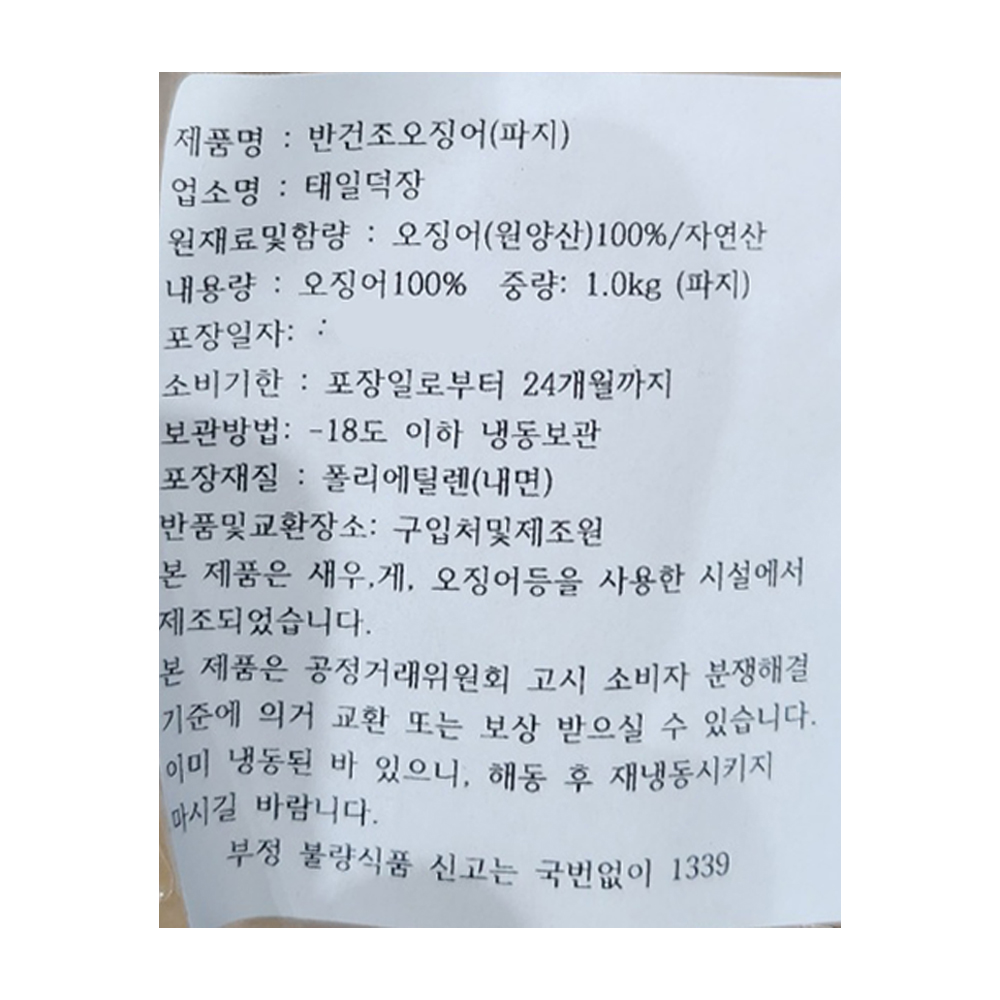 제품명 : 반건조오징어(파지)
업소명 : 태일덕장
원재료및함량 : 오징어(원양산)100%/자연산
내용량 : 오징어100% 중량: 1.0kg (파지)
포장일자: :
소비기한 : 포장일로부터 24개월까지
보관방법: -18도 이하 냉동보관
포장재질 : 폴리에틸렌(내면)
반품및교환장소: 구입처및제조원
본 제품은 새우,게, 오징어등을 사용한 시설에서
제조되었습니다.
본 제품은 공정거래위원회 고시 소비자 분쟁해결
기준에 의거 교환 또는 보상 받으실 수 있습니다.
이미 냉동된 바 있으니, 해동 후 재냉동시키지
마시길 바람니다.
부정 불량식품 신고는 국번없이 1339